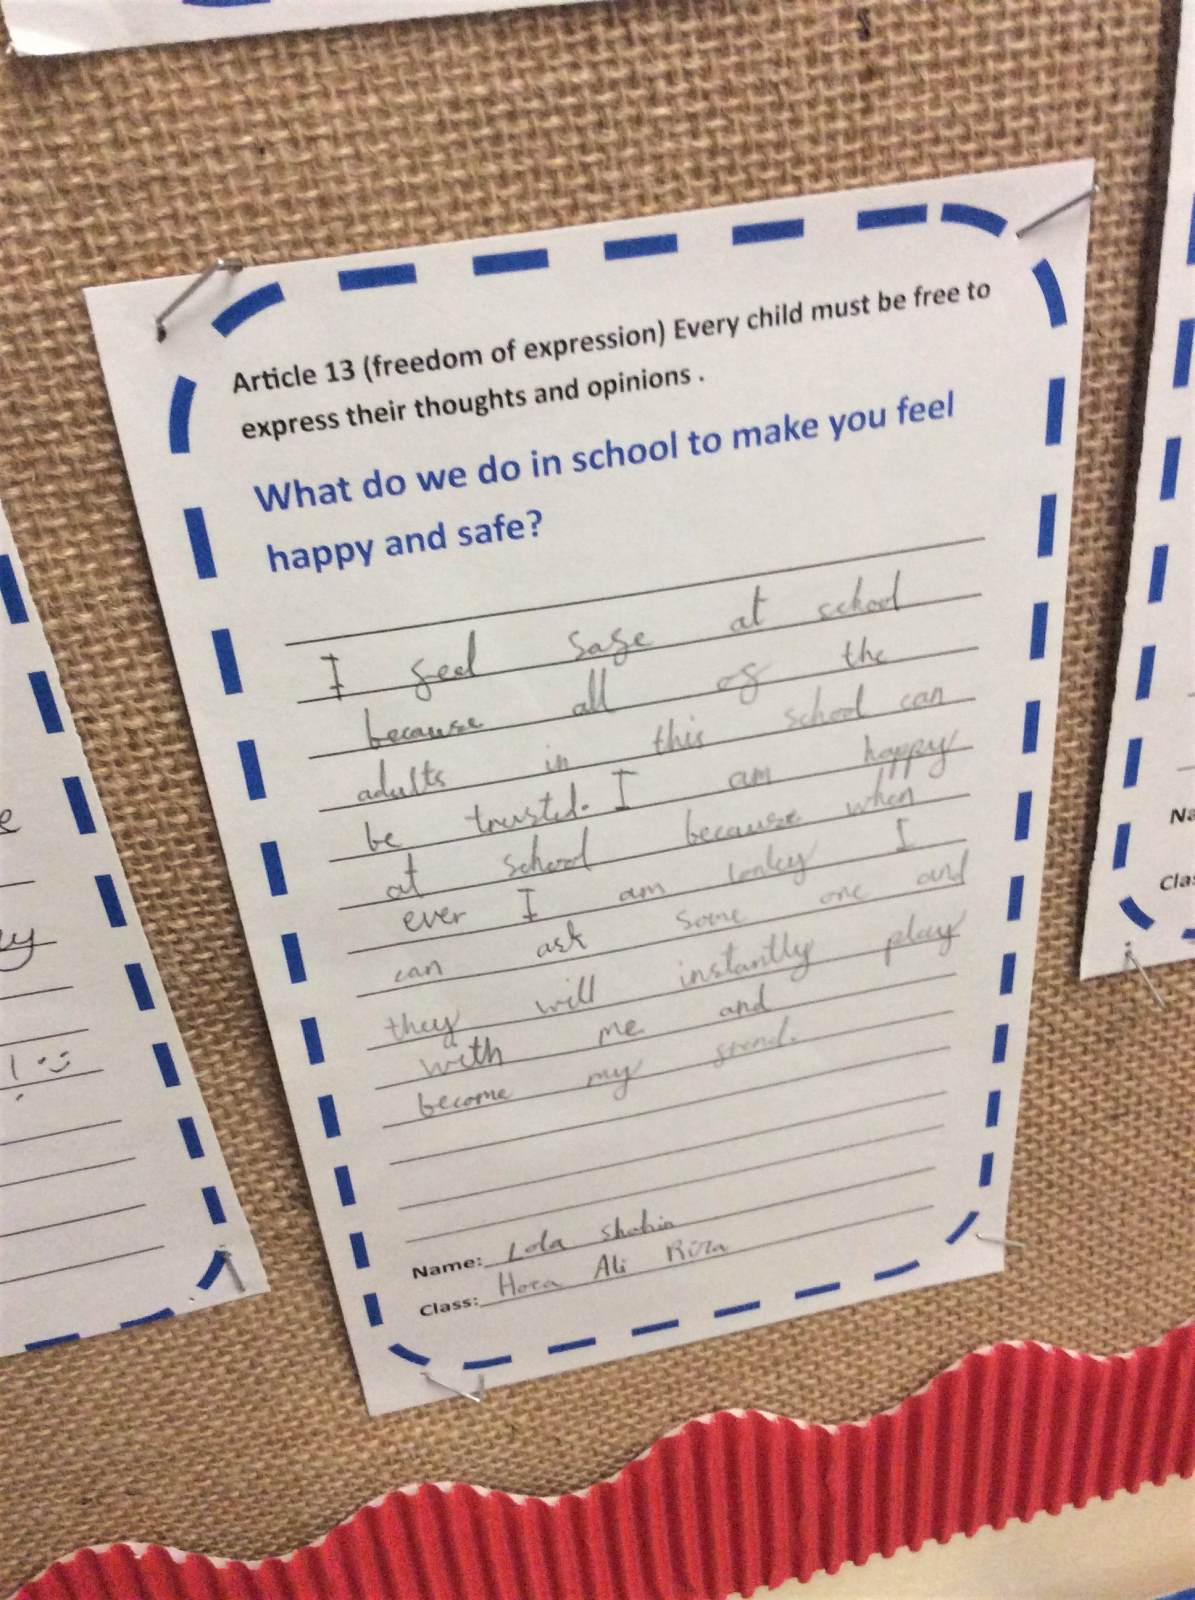 Article 13 (freedom of expression) Every child must be free to
express their thoughts and opinions .
What do we do in school to make you feel
happy and safe?
I feel safe at school
because all of the
adults in this school can
be trusted. I am happy
at school because when
ever I am lonley I
can ask some one and
they will instantly play
with me and
become my friend.
Name: Lola Shahin
Class: Hoca Ali Riza
Na
Clas